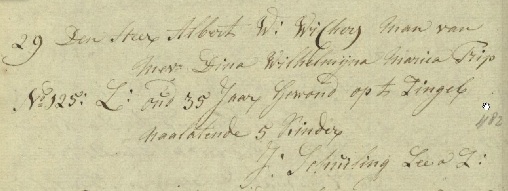 29 Den Heer Albert W: Wichers Man van
Mev: Dina Wilhelmijna Maria Trip
No. 125: L: oud 35 Jaar Gewond op te Zingel
naalatende 5 Kinder
J: Schuiling Lee d L:
482